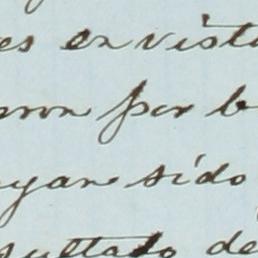 es en vist
ron por b
yan sido
sultado de